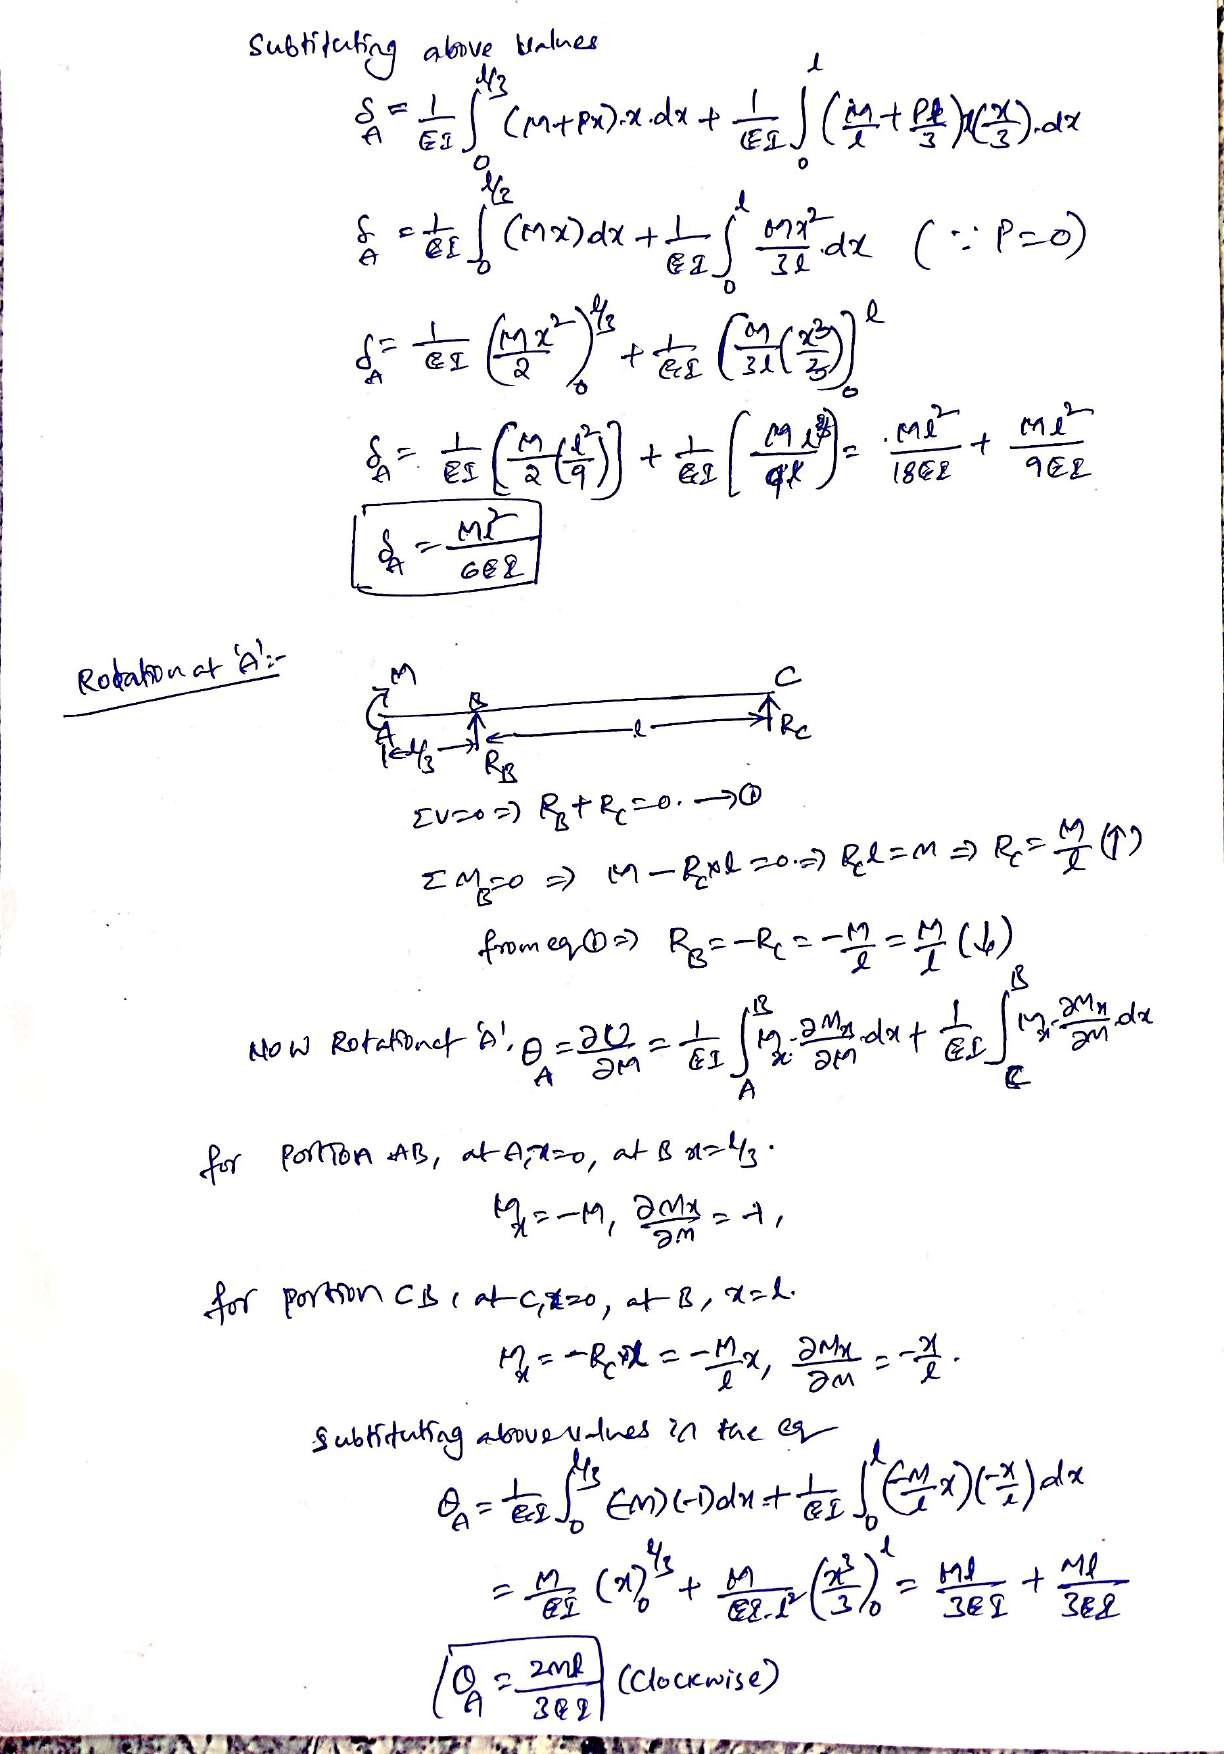 Substituting above values
δ_A = 1/EI ∫_0^{l/3} (M+Px).x.dx + 1/EI ∫_0^l (M/l + P/3)x(x/3).dx
δ_A = 1/EI ∫_0^{l/3} (Mx)dx + 1/EI ∫_0^l Mx²/3l .dx (∵ P=0)
δ_A = 1/EI (Mx²/2)_0^{l/3} + 1/EI (M/3l (x³/3))_0^l
δ_A = 1/EI [M/2 (l²/9)] + 1/EI [Ml³/9l] = Ml²/18EI + Ml²/9EI
δ_A = Ml²/6EI
Rotation at 'A':-
M
A B C
l/3 l
R_B R_C
ΣV=0 => R_B + R_C = 0. → ①
ΣM_B=0 => M - R_C×l = 0. => R_C l = M => R_C = M/l (↑)
from eq ① => R_B = -R_C = -M/l = M/l (↓)
Now Rotation at 'A', θ_A = ∂U/∂M = 1/EI ∫_A^B M_x. ∂M_x/∂M .dx + 1/EI ∫_C^B M_x. ∂M_x/∂M dx
for portion AB, at A, x=0, at B x=l/3.
M_x = -M, ∂M_x/∂M = -1,
for portion CB, at C, x=0, at B, x=l.
M_x = -R_C x = -M/l x, ∂M_x/∂M = -x/l.
Substituting above values in the eq
θ_A = 1/EI ∫_0^{l/3} (-M)(-1)dx + 1/EI ∫_0^l (-M/l x)(-x/l)dx
= M/EI (x)_0^{l/3} + M/EI.l² (x³/3)_0^l = Ml/3EI + Ml/3EI
θ_A = 2Ml/3EI (Clockwise)